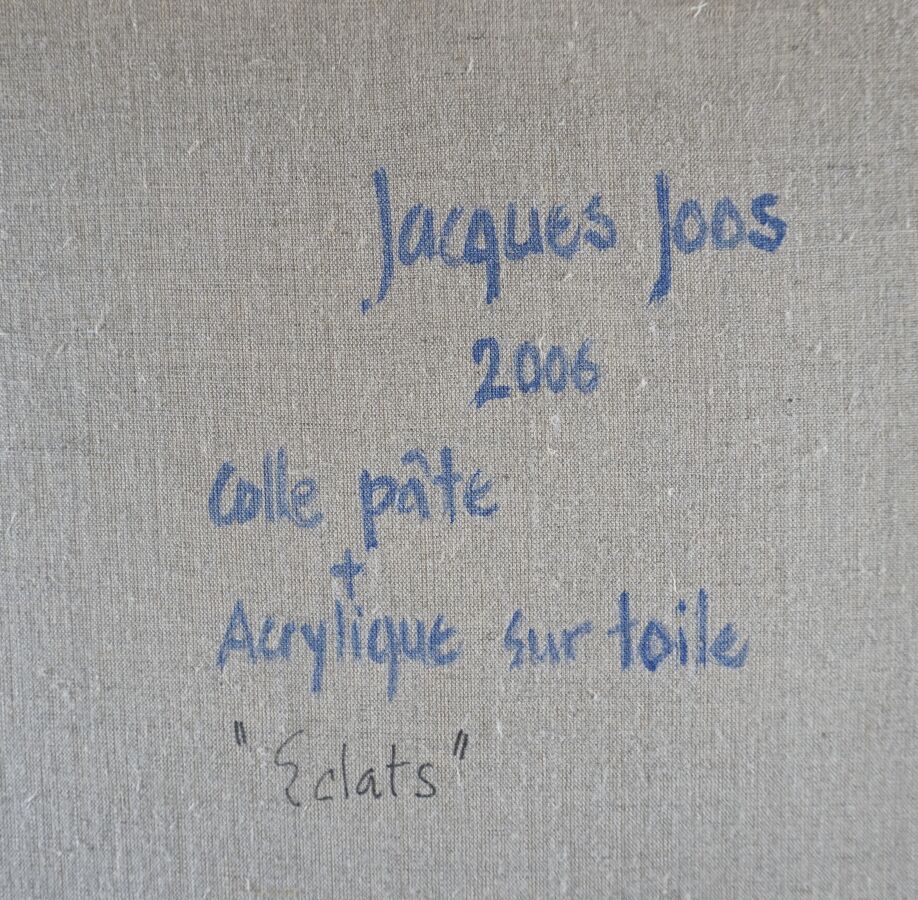 Jacques Joos
2006
Colle pâte
+
Acrylique sur toile
"Eclats"